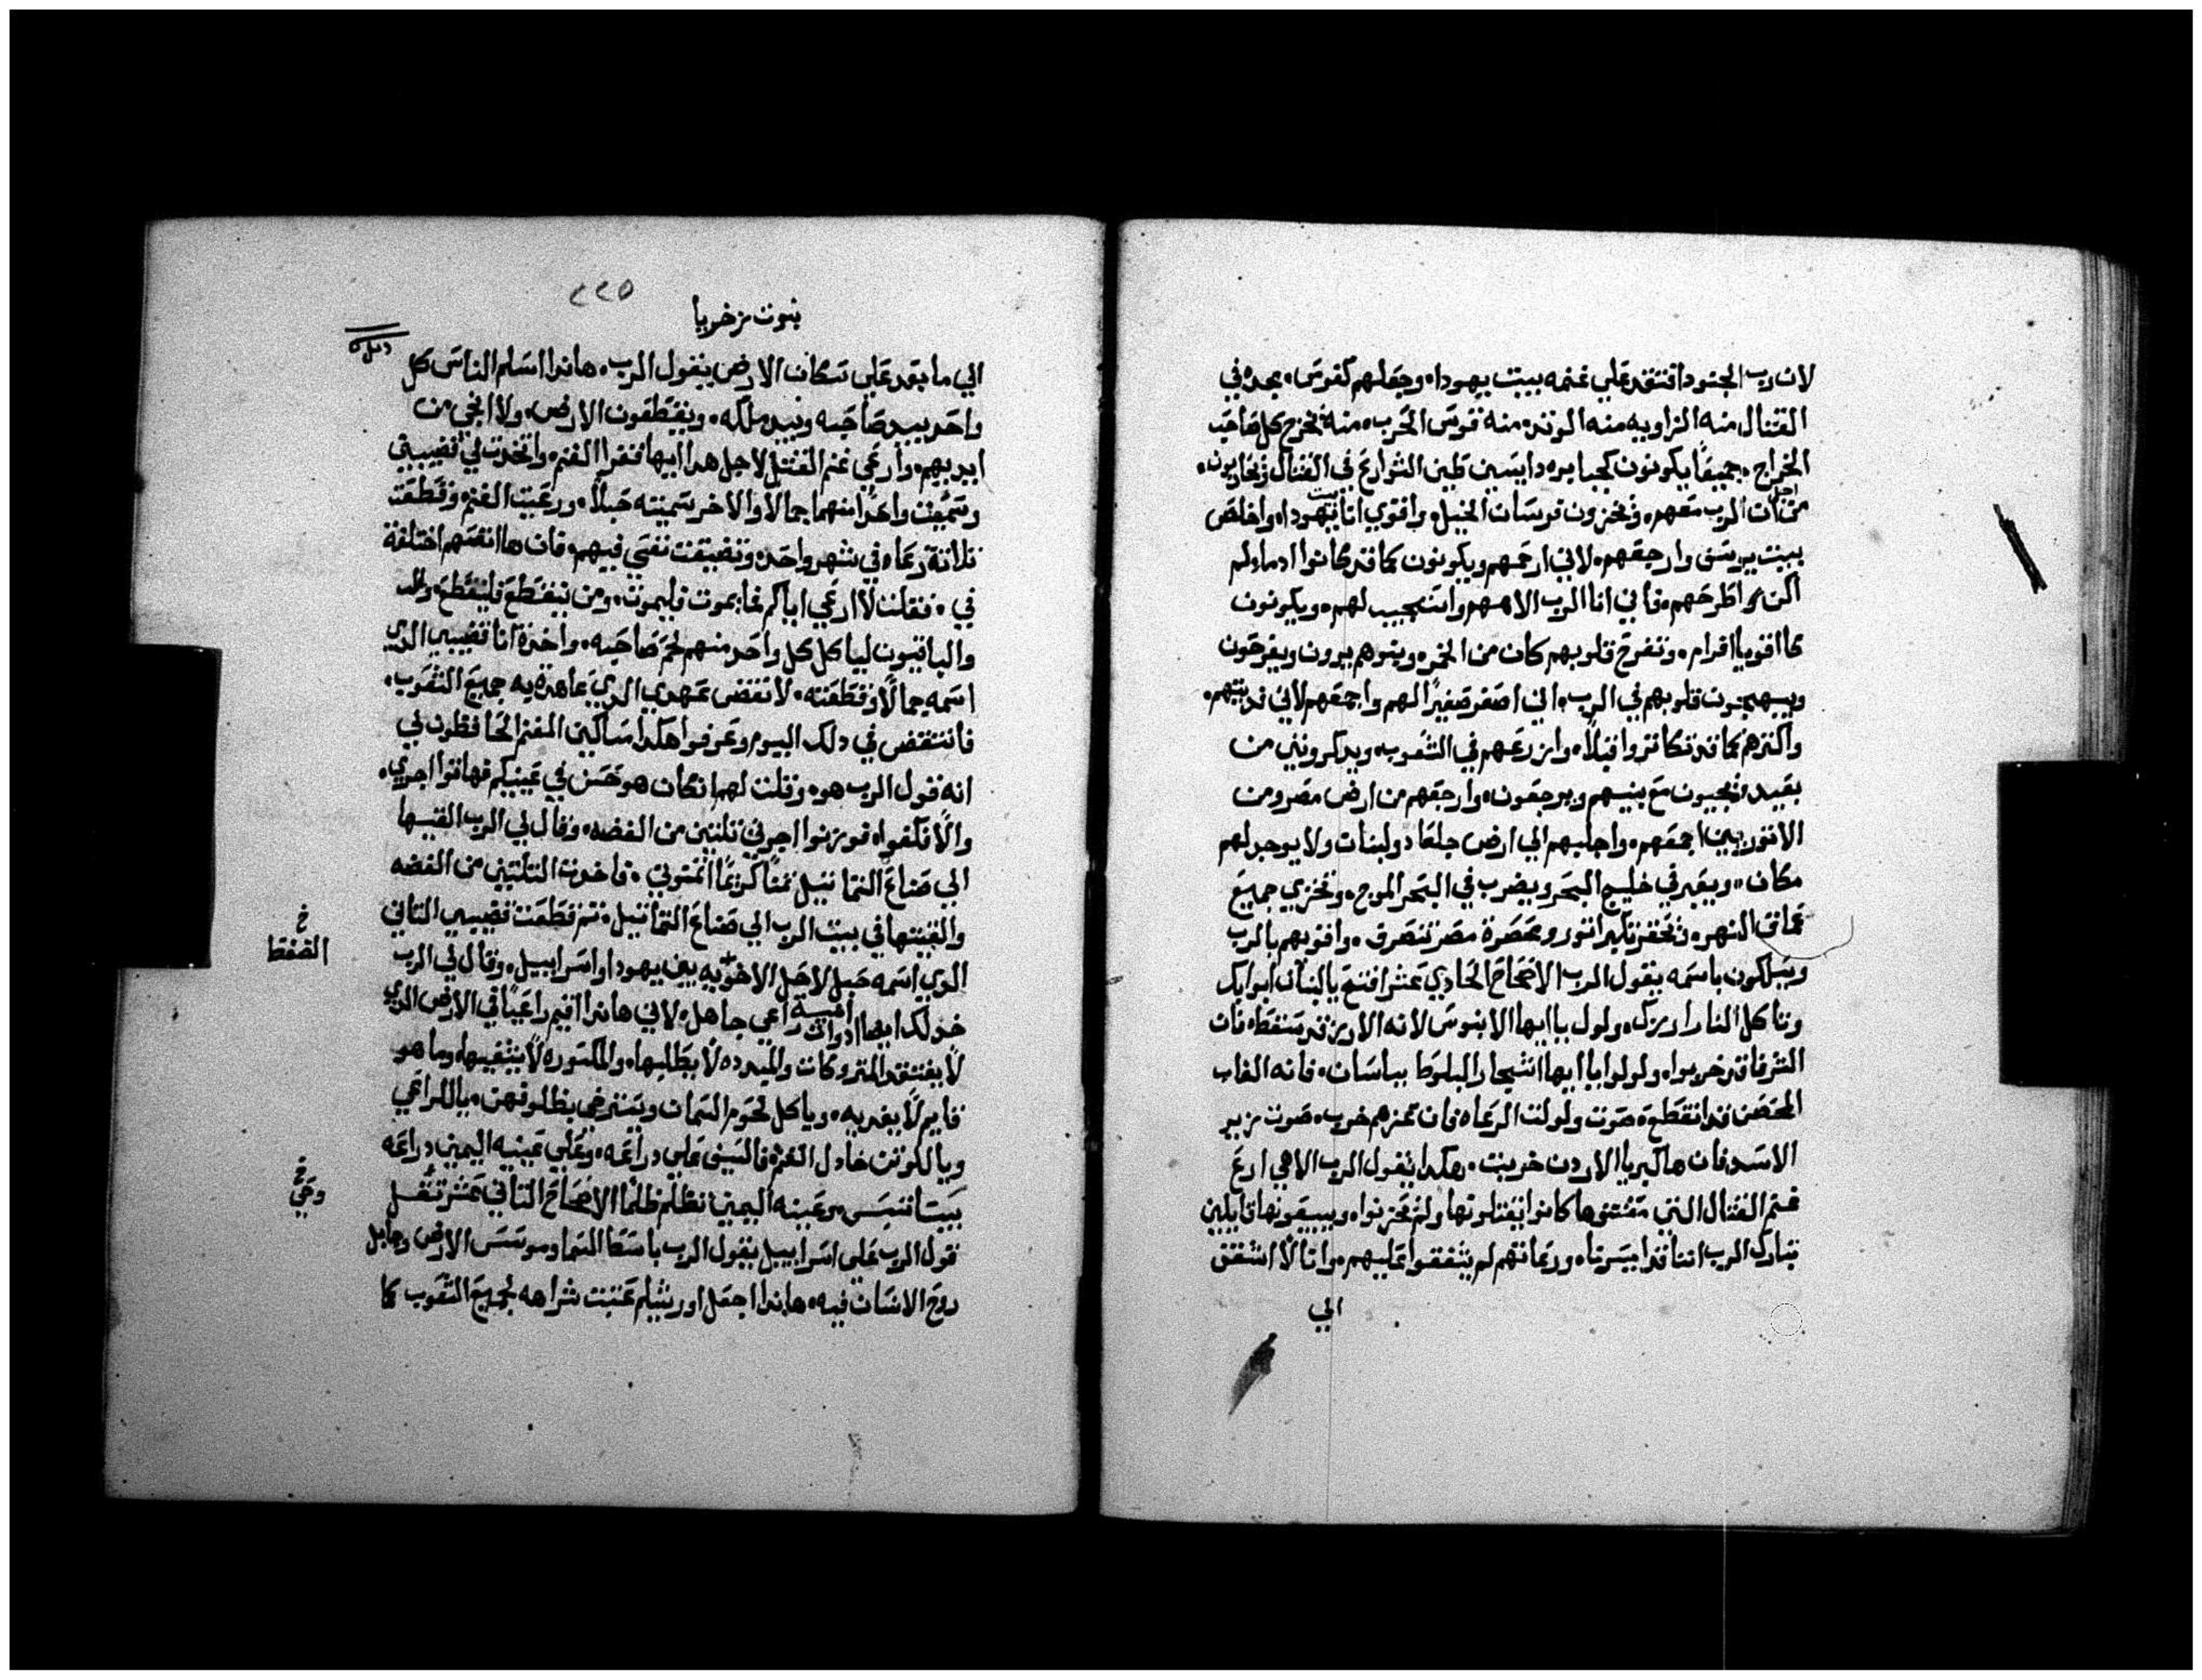 لان رب الجنود افتقد علي غنمه بييت يهودا. وجعلهم كفرس. مجده في
القتال منه الزاويه منه الوتد. منه قوس الحرب. منه يخرج كل صاحب
الخراج. جميعًا يكونون كجبابره دايسين طين الشوارع في القتال ويحاربون.
من اجل ان الرب معهم. ويخزون فرسان الخيل. واقوي انا بيت يهودا. واخلص
بيت يوسف وارجعهم. لاني ارحمهم ويكونون كما قد كانوا ادما لم
اكن اطرحهم. فاني انا الرب الاههم واستجيب لهم. ويكونون
كاقويا افرام. وتفرح قلوبهم كان من الخمر. وبنوهم يرون ويفرحون
ويبهجون قلوبهم في الرب. اني اصفر صفيرًا لهم واجمعهم لاني فديتهم.
واكثرهم كما قد تكاثروا قبلاً. وازرعهم في الشعوب. ويدكرونني من
بعيد. فيحيون مع بنيهم ويرجعون. وارجعهم من ارض مصر ومن
الاتوريين اجمعهم. واجلبهم الي ارض جلعاد ولبنات ولا يوجد لهم
مكان. ويعبر في خليج البحر ويضرب في البحر الموج. وتخزي جميع
عماق النهر. وتحقر تكبر اتور وعصرة مصر تنصرف. واقويهم بالرب
ويسلكون باسمه يقول الرب الاصحاح الحادي عشر افتتح يا لبنان ابوابك
وتاكل النار ارزك. ولول يا ايها الابنوس لانه الارز قد سقط. فان
الشرفا قد خربوا. ولولوا يا ايها اشجار البلوط بباسان. فانه الغاب
المحصن قد انقطع. صوت ولولت الرعاه فان مجدهم خرب. صوت زير
الاسد فان هاكبريا الاردن خربت. هكدا يقول الرب الاهي ارع
غنم القتال التي مقتنوها كانوا يقتلونها ولم يحزنوا. ويبيعونها قايلين
تبارك الرب اننا قد ايسرنا. ورعاتهم لم يشفقوا عليهم. وانا لا اشفق
الي
٢٢٥
نبوت زخريا
الي ما بعد علي سكان الارض يقول الرب. هاندا اسلم الناس كل
واحد بيد صاحبه وبيد ملكه. ويقطعون الارض. ولا انجي من
ايديهم. وارعي غنم القتل لاجل هدا ايها فقرا الغنم. واتخدت لي قضيبين
وسميت واحدًا منهما جمالا والاخر سميته حبلاً. ورعيت الغنم وقطعت
تلاتة رعاه في شهر واحد. وتضيقت نفسي فيهم. فان هانفسهم اختلفة
في. فقلت لا ارعي اياكم. فما يموت فليموت. ومن ينقطع فلينقطع. ولله
والباقيون لياكل كل واحد منهم لحم صاحبه. واخدة انا قضيبي الدي
اسمه جمالًا وقطعته. لا تنقض عهدي الدي عاهدة به جميع الشعوب.
فانتقض في دلك اليوم وعرفوا هكدا مساكين الغنم الحافظون لي
انه قول الرب هو. وقلت لهم ان كان هو حسن في عينيكم فهاتوا اجرتي.
والا فكفوا. فوزنوا اجرتي تلتين من الفضه. وقال لي الرب القيها
الي صناع التماتيل تمنًا كريمًا اتمنوني. فاخدت التلتين من الفضه
والقيتها في بيت الرب الي صناع التماتيل. تم قطعت قضيبي التاني
الدي اسمه حبل لاحل الاخويه بين يهودا واسراييل. وقال لي الرب
خد لك ايضا ادوات راعي جاهل. لاني هاندا اقيم راعيًا في الارض الدي
لا يفتقد المتروكات والمبدده لا يطلبها. والمكسوره لا يشفيها. وما هو
قايم لا يغديه. وياكل لحوم السمان ويسترخي بظلوفهن. يا للراعي
ويا للوتن خادل الغنم. فالسيف علي دراعه. وعلي عينيه اليمني دراعه
يبسا تيبس. وعينه اليمين تظلم ظلمًا الاصحاح التاني عشر تقل
قول الرب علي اسراييل يقول الرب باسط السما وموسس الارض وجابل
روح الانسان فيه. هاندا اجعل اورشليم عتبت شراهه لجميع الشعوب كما
خ
الضغط
خ
وعي